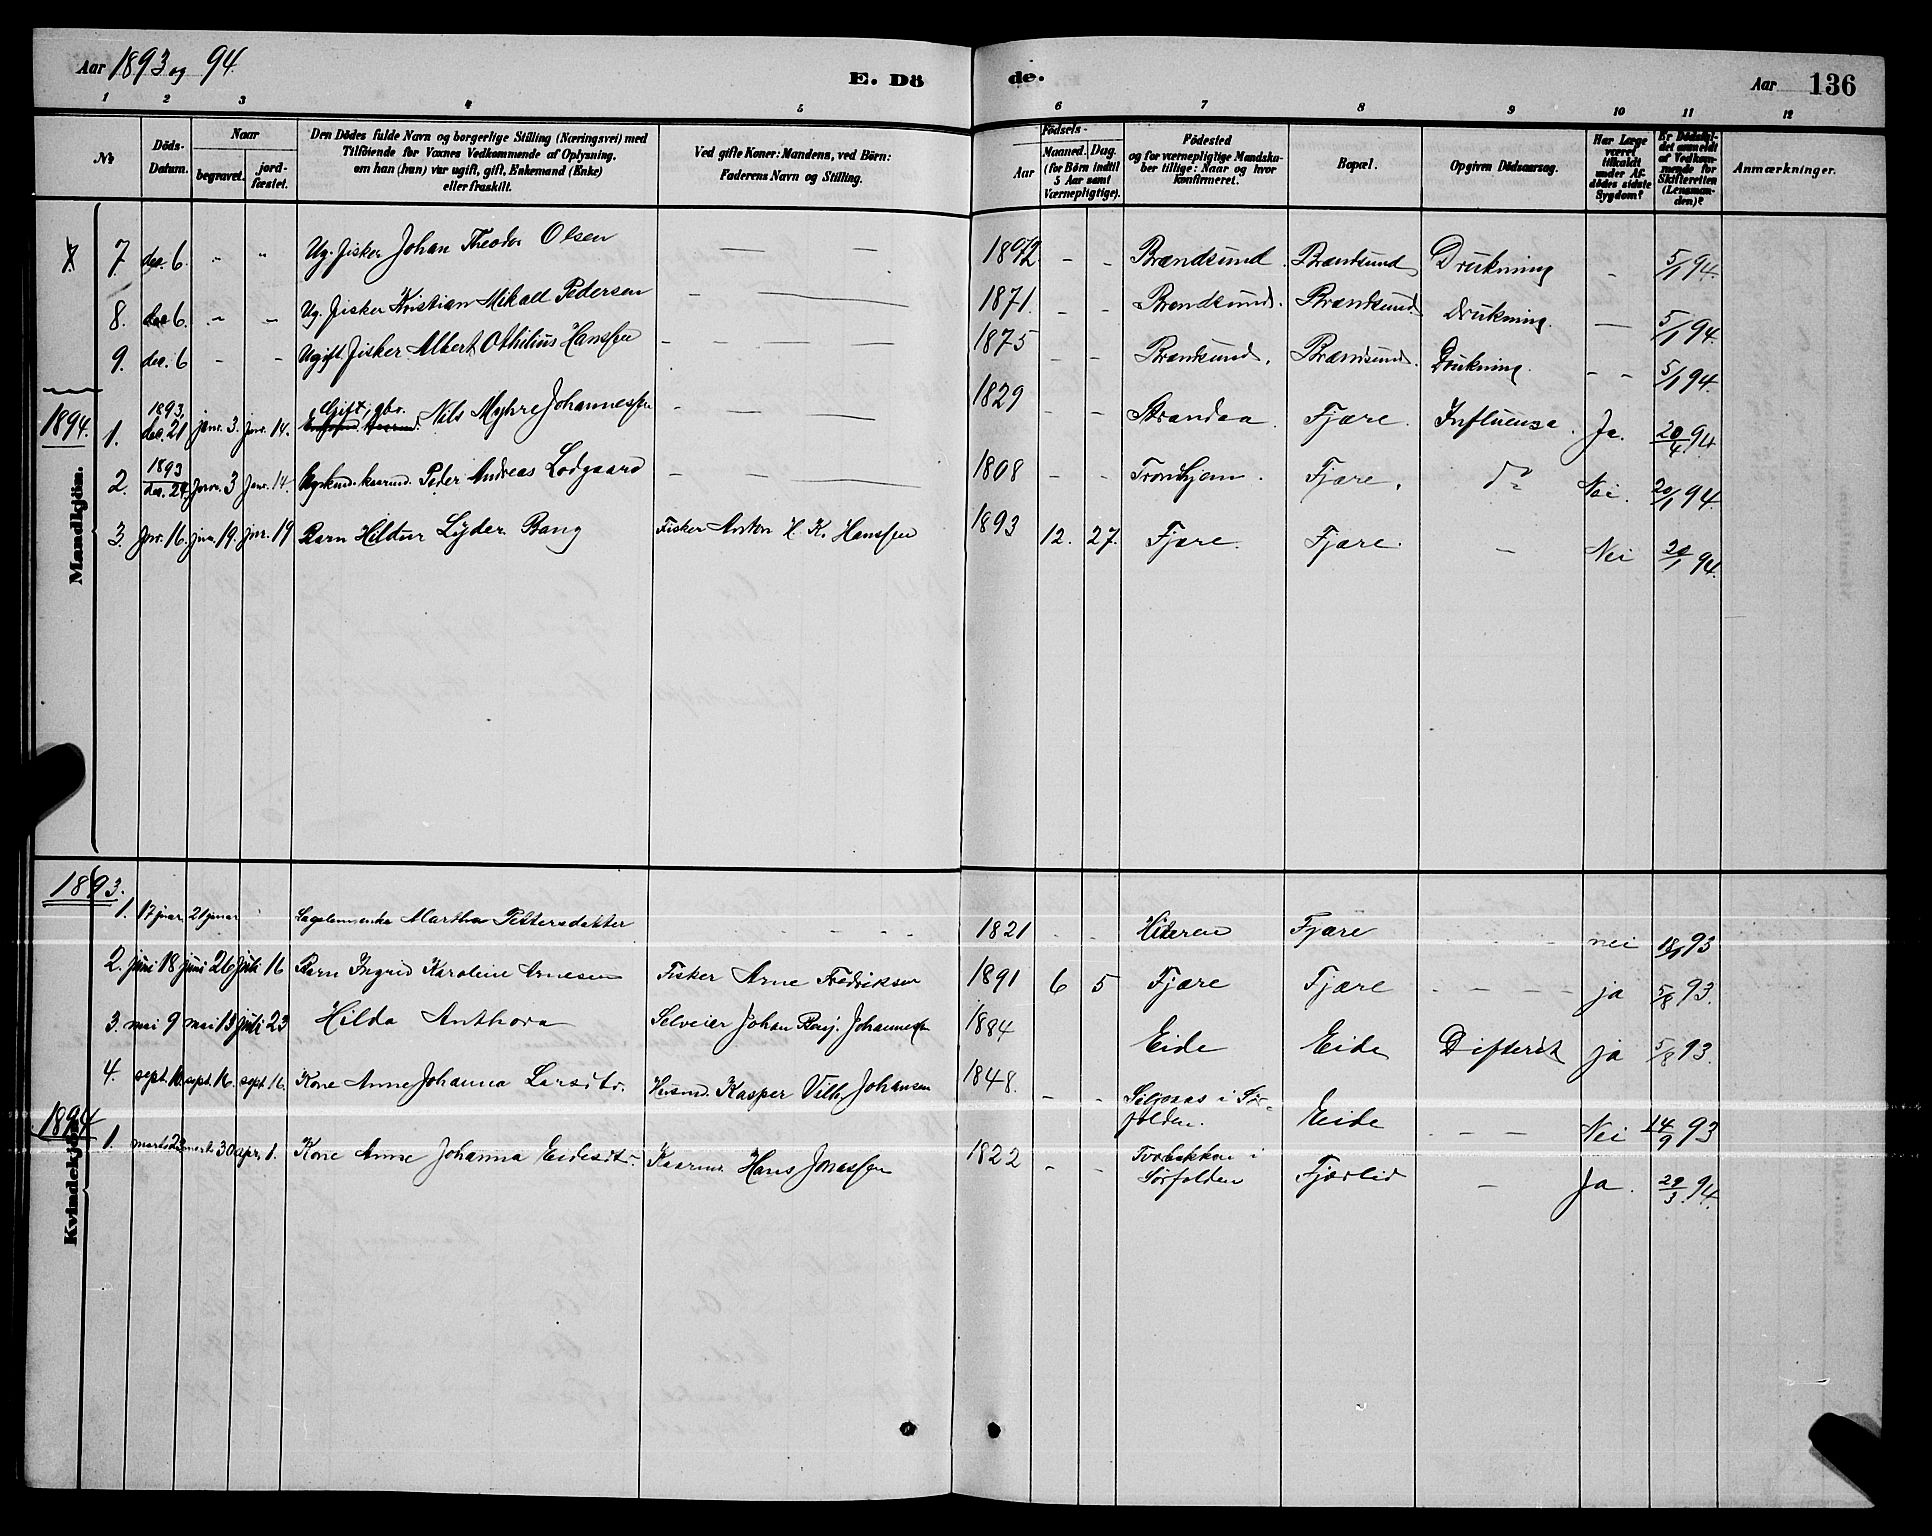 Aar 1893 og 94.
E. Dö
de.
Aar 136
1 2 3 4 5 6 7 8 9 10 11 12
№
Döds-
Datum.
Naar
begravet.
jord-
fæstet.
Den Dödes fulde Navn og borgerlige Stilling (Næringsvei) med
Tilföiende for Voxnes Vedkommende af Oplysning,
om han (hun) var ugift, gift, Enkemand (Enke)
eller fraskilt.
Ved gifte Koner: Mandens, ved Börn:
Faderens Navn og Stilling.
Födsels-
Aar
Maaned. Dag.
(for Börn indtil
5 Aar samt
Værnepligtige).
Födested
og for værnepligtige Mandska-
ber tillige: Naar og hvor
konfirmeret.
Bopæl.
Opgiven Dödsaarsag.
Har Læge
været
tilkaldt
under Af-
dödes sidste
Sygdom?
Er Dödsfal-
det anmeldt
af Vedkom-
mende for
Skifteretten
(Lensman-
den)?
Anmærkninger.
7. dec. 6. " " Ug. fisker Johan Theodor Olsen — — 1872. - - Brændsund. Brændsund Drukning - 5/1 94.
8. dec 6. - - Ug. fisker Kristian Mikael Pedersen - — 1871. - - Brændsund. Brændsund. Drukning. — 5/1 94.
9. dec. 6 - - Ugift fisker Albert Othilius Hanssen - - - - 1875 - - Brændsund. Brændsund. Drukning. - - 5/1 94
1894.
1. 1893, dec. 21 janr. 3. janr. 14. Gift, gbr. Nils Myhre Johannessen - — — 1829 Strandaa. Fjære. Influensa. Ja. 20/4 94
2. 1893 dec. 24, janr. 3 janr. 14. Peder Andreas Lodgaard - — — 1808 - - Tronhjem. Fjære. do Nei. 20/1 94.
3. janr. 16. janr. 19. janr. 19 Barn Hildur Lyder Bang Fisker Anton H. K. Hanssen 1893 12. 27. Fjære. Fjære. - Nei 20/1 94.
Mandkjön.
1893.
1. 17 januar 21 januar Martha Pettersdatter - - - - 1821 - - Hiteren Fjære - - - nei 18/1 93
2. juni 18 juni 26 juli 16 Barn Ingrid Karoline Arnesen Fisker Arne Fredriksen 1891 6 5 Fjære Fjære - - - - ja 5/8 93.
3. mai 9 mai 13 juli 23 Hilda Anthora Selveier Johan Benj. Johannessen 1884 Eide Eide Difterit ja 5/8 93.
4. sept. 10 sept. 16. sept. 16. Kone Anne Johanna Larsdtr. Husmd. Kasper Vilh. Johansen 1848. - - i Sör-
folden. Eide - — — Nei 14/9 93
1894
1. marts 23 marts 30 apr. 1. Kone Anne Johanna Eidesdtr. Kaarm. Hans Jonassen 1822 - - Tvebakken i
Sörfolden Fjærlid - Ja. 29/3 94.
Kvindekjön.